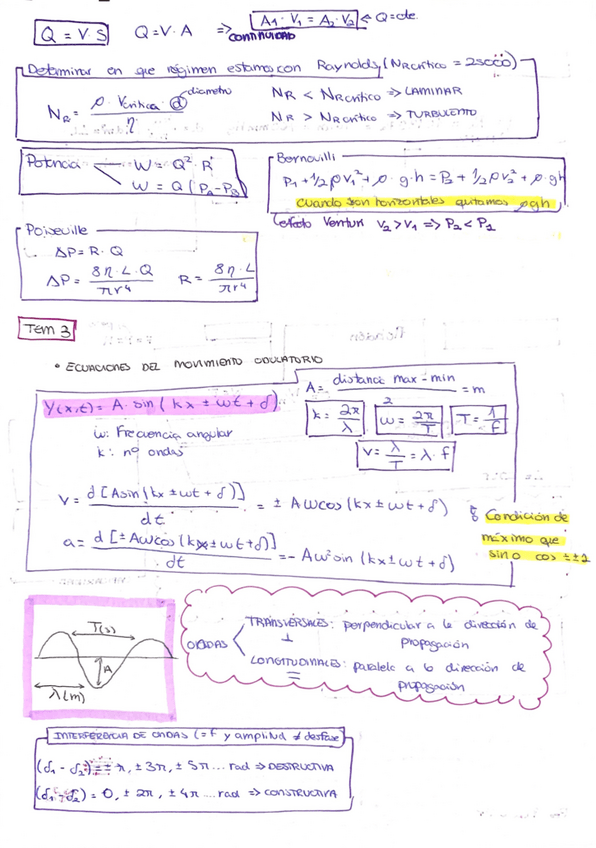 Q = V·S   Q = V·A   => A1 · V1 = A2 · V2 ← Q=cte.
CONTINUIDAD
Determinar en que régimen estamos con Raynolds (NRcrítico = 2500)
NR = ρ · Vcrítica · d / η   diametro
NR < NRcrítico => LAMINAR
NR > NRcrítico => TURBULENTO
Potencia   W = Q² · R
W = Q (P2 - P1)
Bernouilli
P1 + 1/2 ρV1² + ρ · g · h = P2 + 1/2 ρV2² + ρ · gh
cuando son horizontales quitamos ρgh
(efecto Venturi V2 > V1 => P2 < P1
Poiseuille
ΔP = R · Q
ΔP = 8η · L · Q / πr⁴   R = 8η · L / πr⁴
Tem 3
• ECUACIONES DEL MOVIMIENTO ODULATORIO
Y(x,t) = A · sin (kx ± ωt + δ)
A = distancia max - min / 2 = m
k = 2π / λ   ω = 2π / T   T = 1 / f
ω: Frecuencia angular
k: nº ondas
V = λ / T = λ · f
V = d [A sin (kx ± ωt + δ)] / dt = ± Aω cos (kx ± ωt + δ)
a = d [± Aω cos (kx ± ωt + δ)] / dt = - Aω² sin (kx ± ωt + δ)
Condición de
máximo que
sin o cos = ±1
T(s)
A
λ(m)
ONDAS
TRANSVERSALES: perpendicular a la dirección de
⊥ propagación
LONGITUDINALES: paralela a la dirección de
= propagación
INTERFERENCIA DE ONDAS (= f y amplitud ≠ desfase)
(δ1 - δ2) = ± π, ± 3π, ± 5π ... rad => DESTRUCTIVA
(δ1 - δ2) = 0, ± 2π, ± 4π ... rad => CONSTRUCTIVA